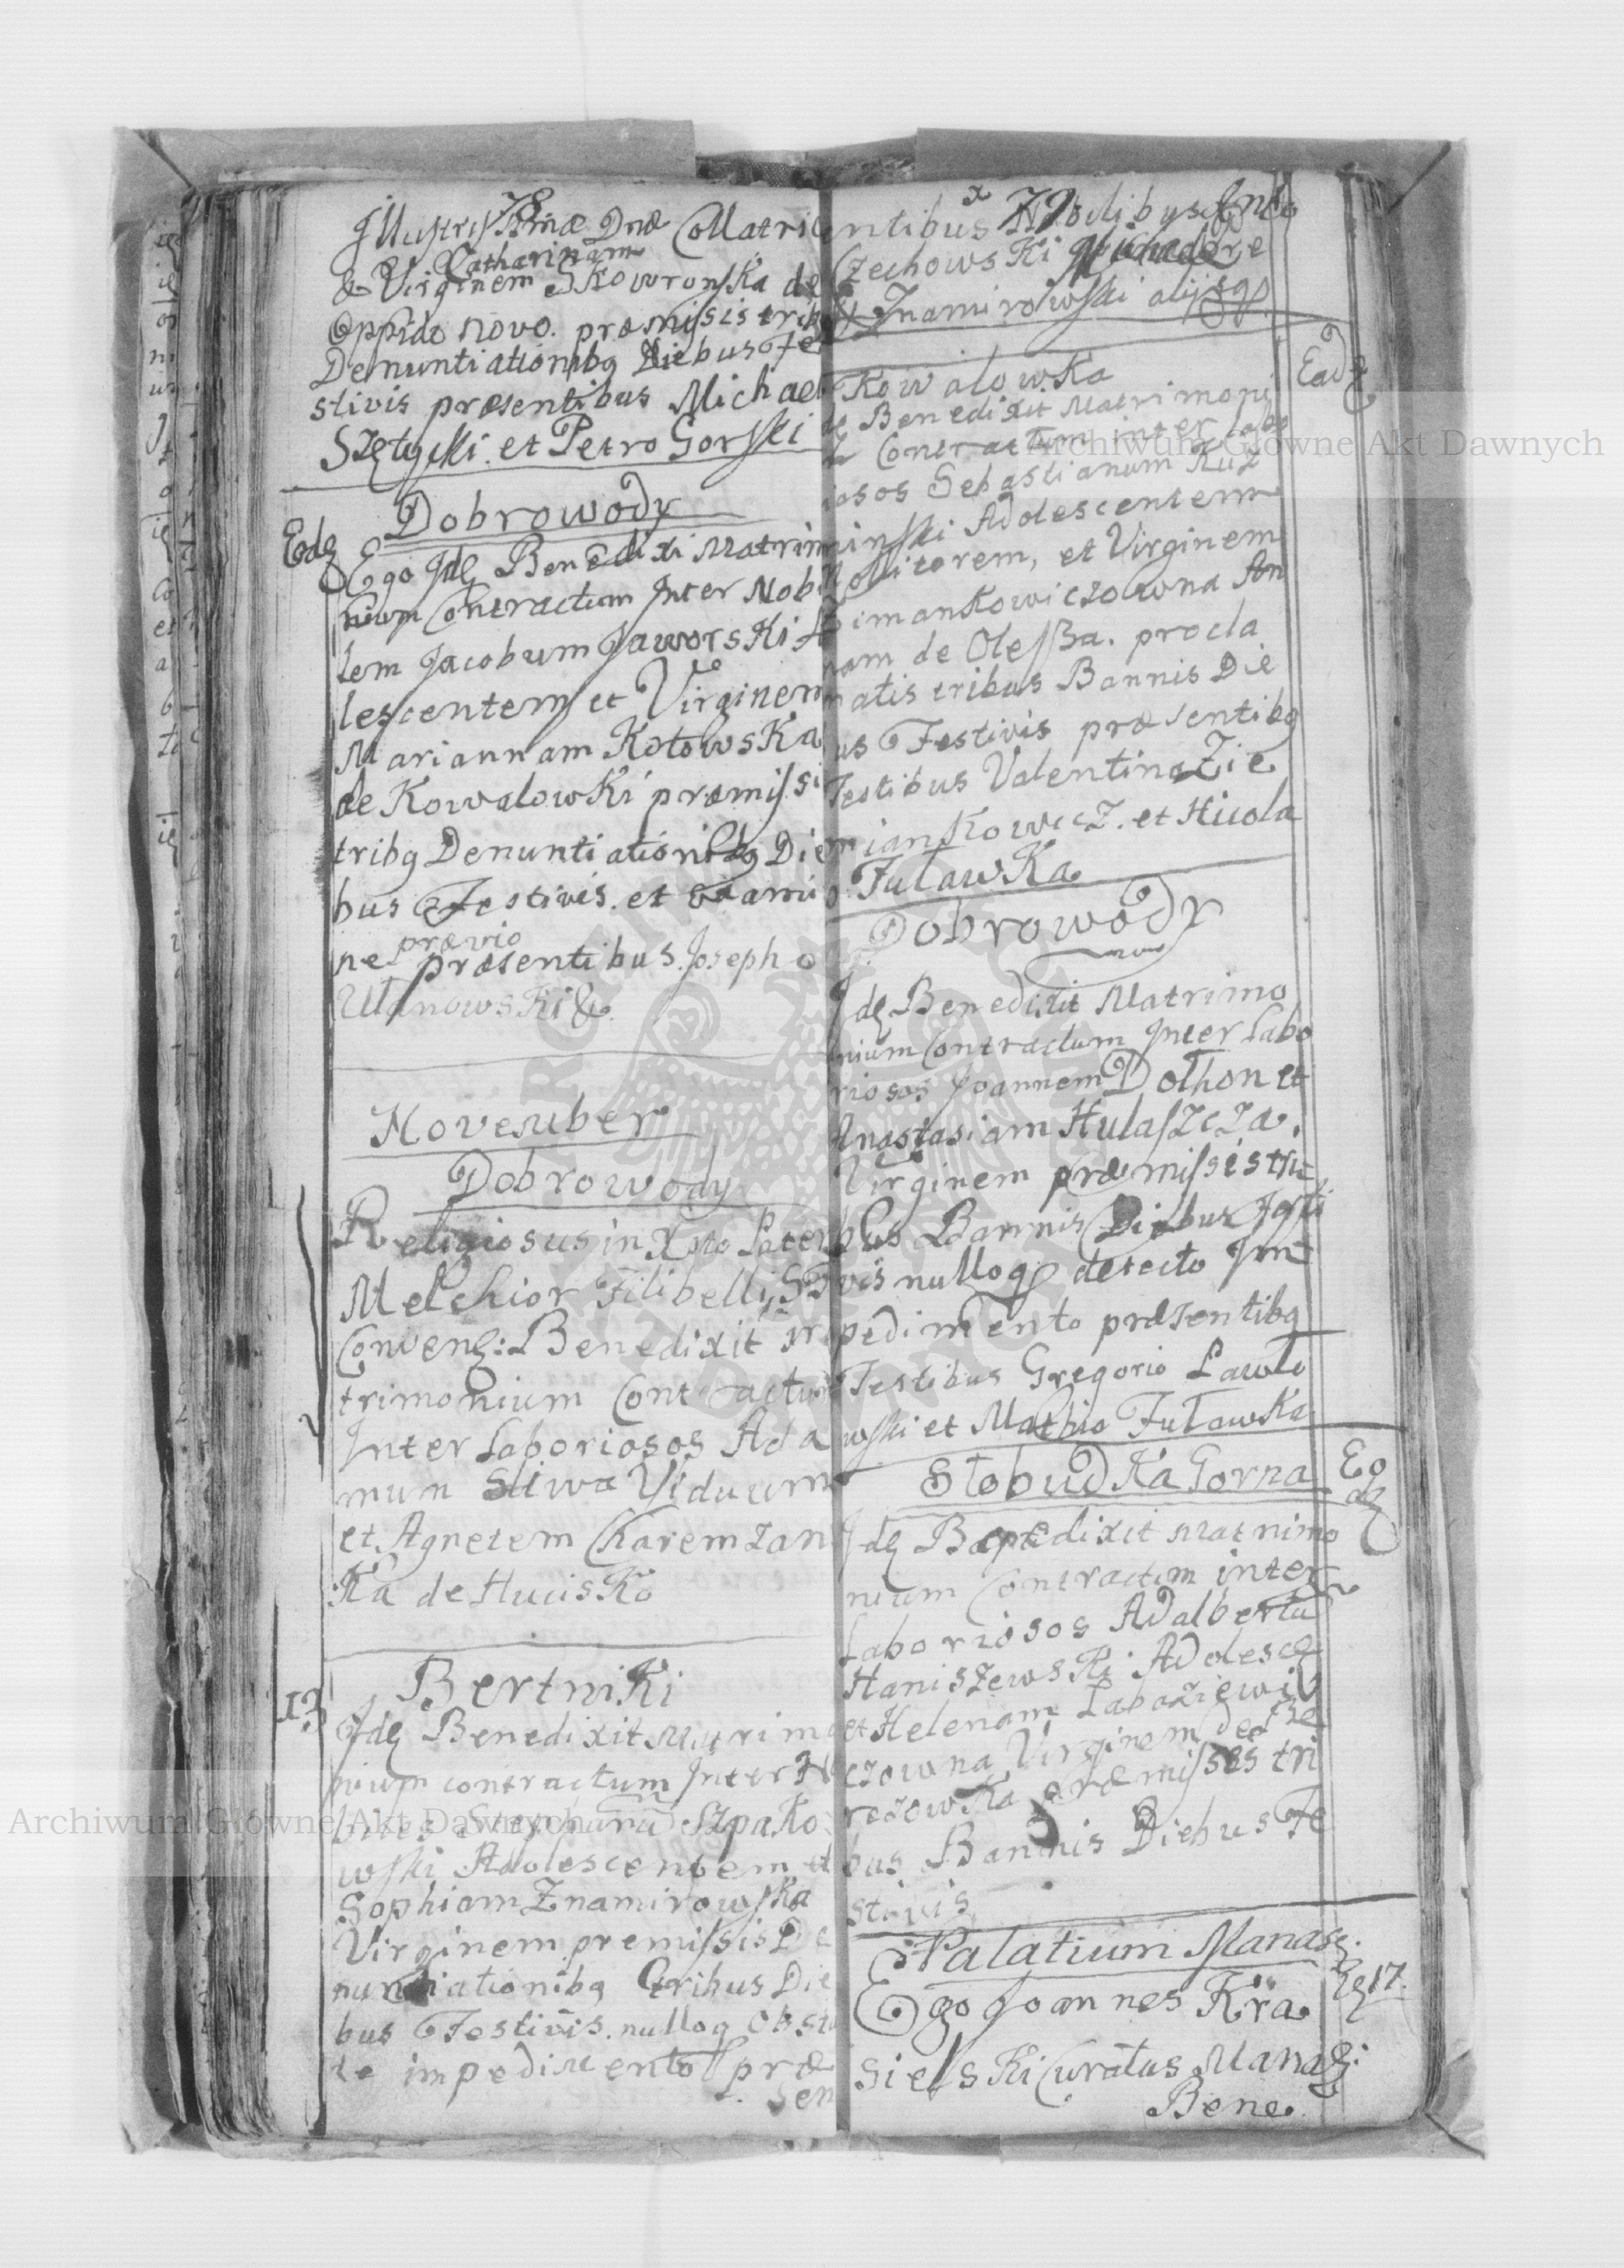 78
Illustrissimæ Dnæ Collatric
Catharinam
& Virginem Skowronska de
Oppido novo. præmissis trib
Denuntiationibg Diebus Fe
stivis præsentibus Michael
et Petro Gorski
Dobrowody
Eodg
Ego Idg Benedixi Matrim
nium Contractum Inter Nobi
lem Jacobum Jaworski A
lescentem et Virginem
Mariannam Kotowska
de Kowalowki præmissi
tribg Denuntiationibg Die
bus Festivis. et exami
prævio
ne præsentibus. Josepho
Ulanowski &.
November
Dobrowody
Religiosus in Xpto Pater
Melchior Filibelli
Conveng: Benedixit
trimonium Contractum
Inter Laboriosos Ada
mum Sliwa Viduum
et Agnetem Charemzan
Ka de Hucisko
Bertniki
13
Idg Benedixit Matrimo
nium contractum Inter No
Stephanū Szpako
wski Adolescentem et
Sophiam Znamirowska
Virginem premissis De
nuntiationibg tribus Die
bus Festivis. nullog Obsta
te impedimento præ
sen
79
ntibus
Czechowski
et Znamirowski alijsq
Kowalowka
Eadg
Benedixit Matrimoni
Contractum inter Labo
iosos Sebastianum Kuz
inski Adolescentem
Molitorem, et Virginem
Zimankowiczowna An
nam de Olessza. procla
matis tribus Bannis Die
us Festivis præsentibg
Testibus Valentino Zie
miankowicz. et Nicola
o Futawka
Dobrowody
Idg Benedixit Matrimo
nium Contractum Inter Labo
riosos Joannem Dothon et
Anastasiam Hulaszcza.
Virginem præmissis tri
bus Bannis Diebus Festi
vis nulloq detecto Im
pedimento præsentibg
Testibus Gregorio Pawlo
wski et Mathia Futawka
Stobudka Gorna
Eo
dg
Idg Benedixit Matrimo
nium Contractum inter
Laboriosos Adalbertū
Haniszewski Adolesce
et Helenam
czowna Virginem de Tre
rezowka præmisses tri
bus Bannis Diebus Fe
stivis
Palatium Manas.
17.
Ego Joannes Kra
sielski Curatus Manas:
Bene